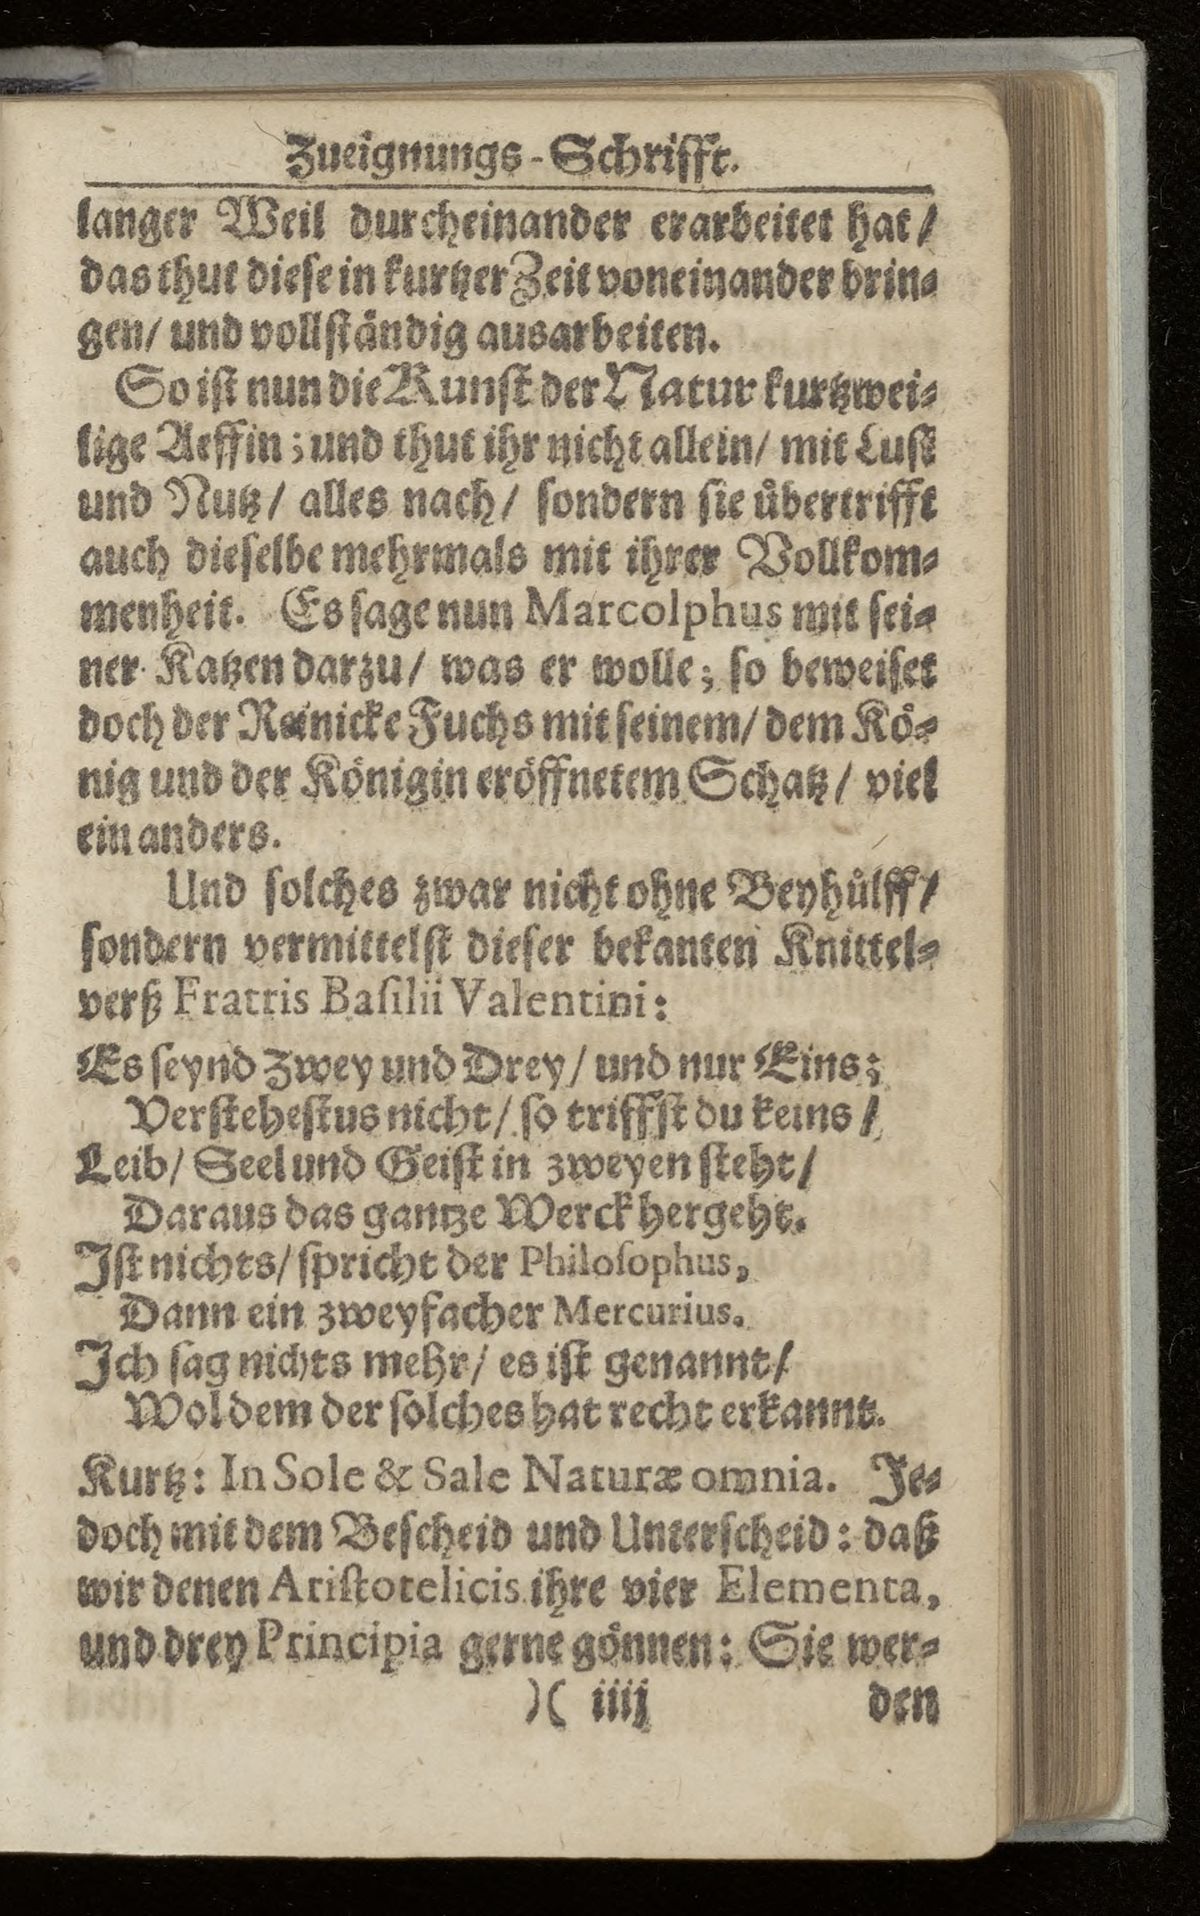 Zueignungs-Schrifft.
langer Weil durcheinander erarbeitet hat/
das thut diese in kurtzer Zeit voneinander brin-
gen/ und vollständig ausarbeiten.
So ist nun die Kunst der Natur kurtzwei-
lige Aeffin; und thut ihr nicht allein/ mit Lust
und Nutz/ alles nach/ sondern sie uͤbertrifft
auch dieselbe mehrmals mit ihrer Vollkom-
menheit. Es sage nun Marcolphus mit sei-
ner Katzen darzu/ was er wolle; so beweiset
doch der Reinicke Fuchs mit seinem/ dem Kö-
nig und der Königin eröffnetem Schatz/ viel
ein anders.
Und solches zwar nicht ohne Beyhuͤlff/
sondern vermittelst dieser bekanten Knittel-
verß Fratris Basilii Valentini:
Es seynd Zwey und Drey/ und nur Eins;
Verstehestus nicht/ so triffst du keins/
Leib/ Seel und Geist in zweyen steht/
Daraus das gantze Werck hergeht.
Ist nichts/ spricht der Philosophus,
Dann ein zweyfacher Mercurius.
Ich sag nichts mehr/ es ist genannt/
Wol dem der solches hat recht erkannt.
Kurtz: In Sole & Sale Naturæ omnia. Je-
doch mit dem Bescheid und Unterscheid: daß
wir denen Aristotelicis ihre vier Elementa,
und drey Principia gerne gönnen: Sie wer-
)( iiij den